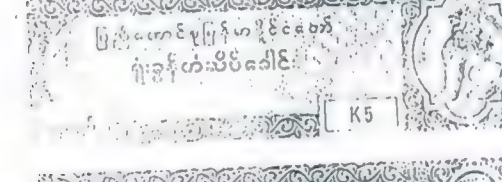 ပြည်ထောင်စုမြန်မာနိုင်ငံတော်
ရုံးခွန်တံဆိပ်ခေါင်း
K5